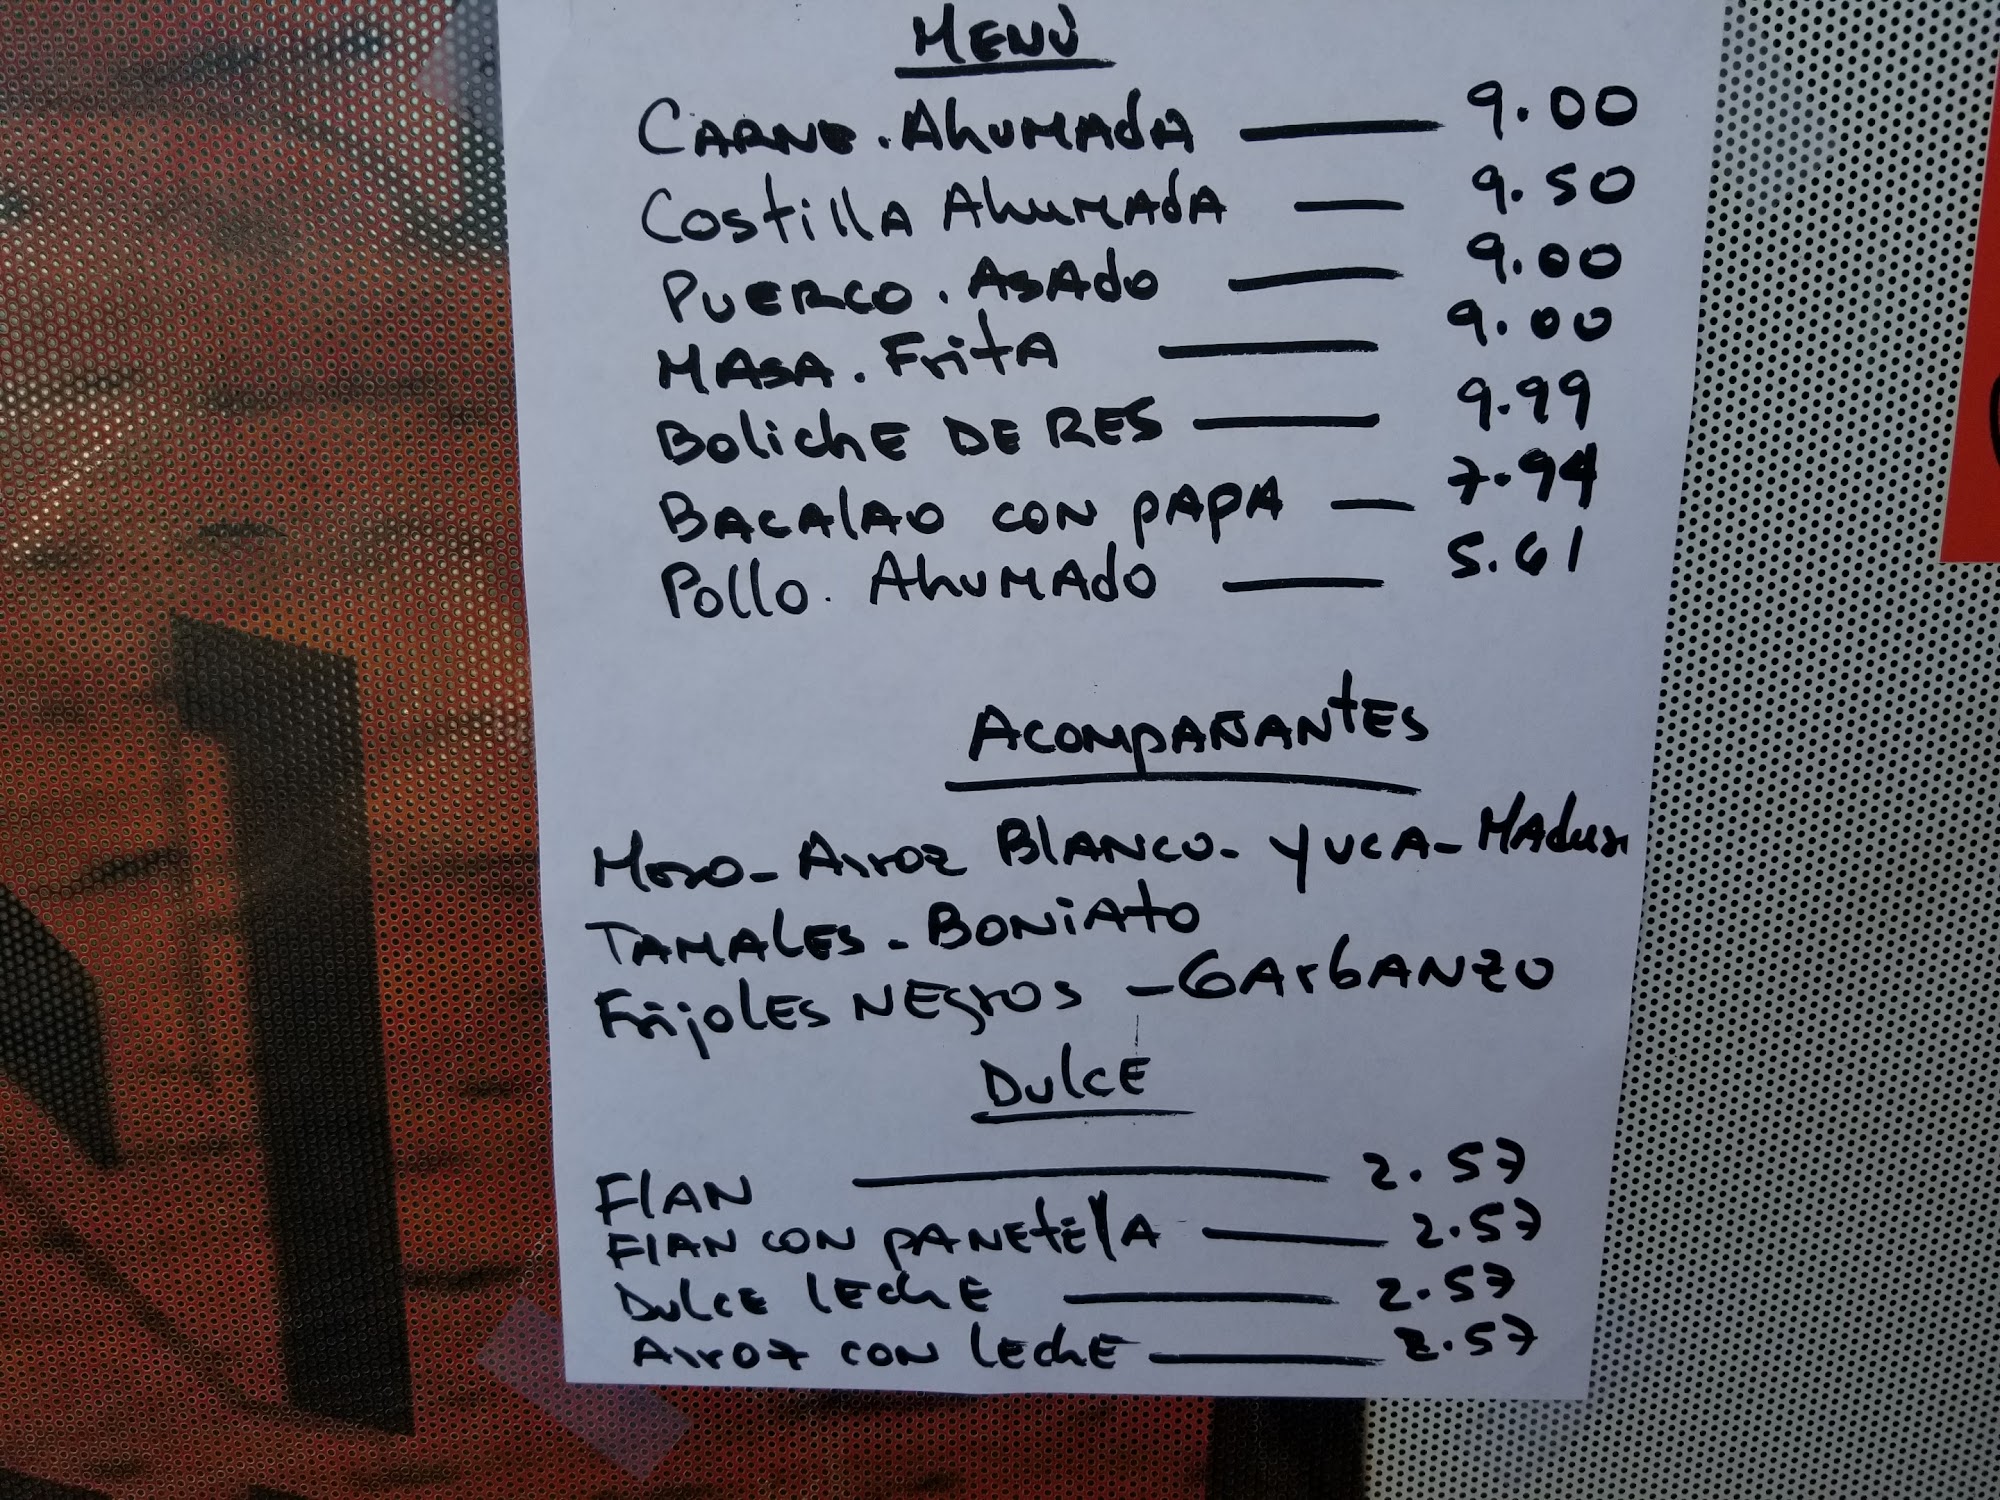 MENÚ
CARNE. AhUMAdA — 9.00
CostillA AhUMAdA — 9.50
PUERCO. ASAdo — 9.00
MASA. FritA — 9.00
BolichE DE RES — 9.99
BACAlAO CON PAPA — 7.94
Pollo. AhUMAdo — 5.61
ACOMPAÑANtES
Moro - Arroz BlANCO - YUCA - MAduro
TAMALES - BONiAto
FrijoLES NEgros - GArbANzo
DulcE
FlAN — 2.57
FlAN CON PANEtElA — 2.57
DulcE lEchE — 2.57
Arroz CON lEchE — 2.57